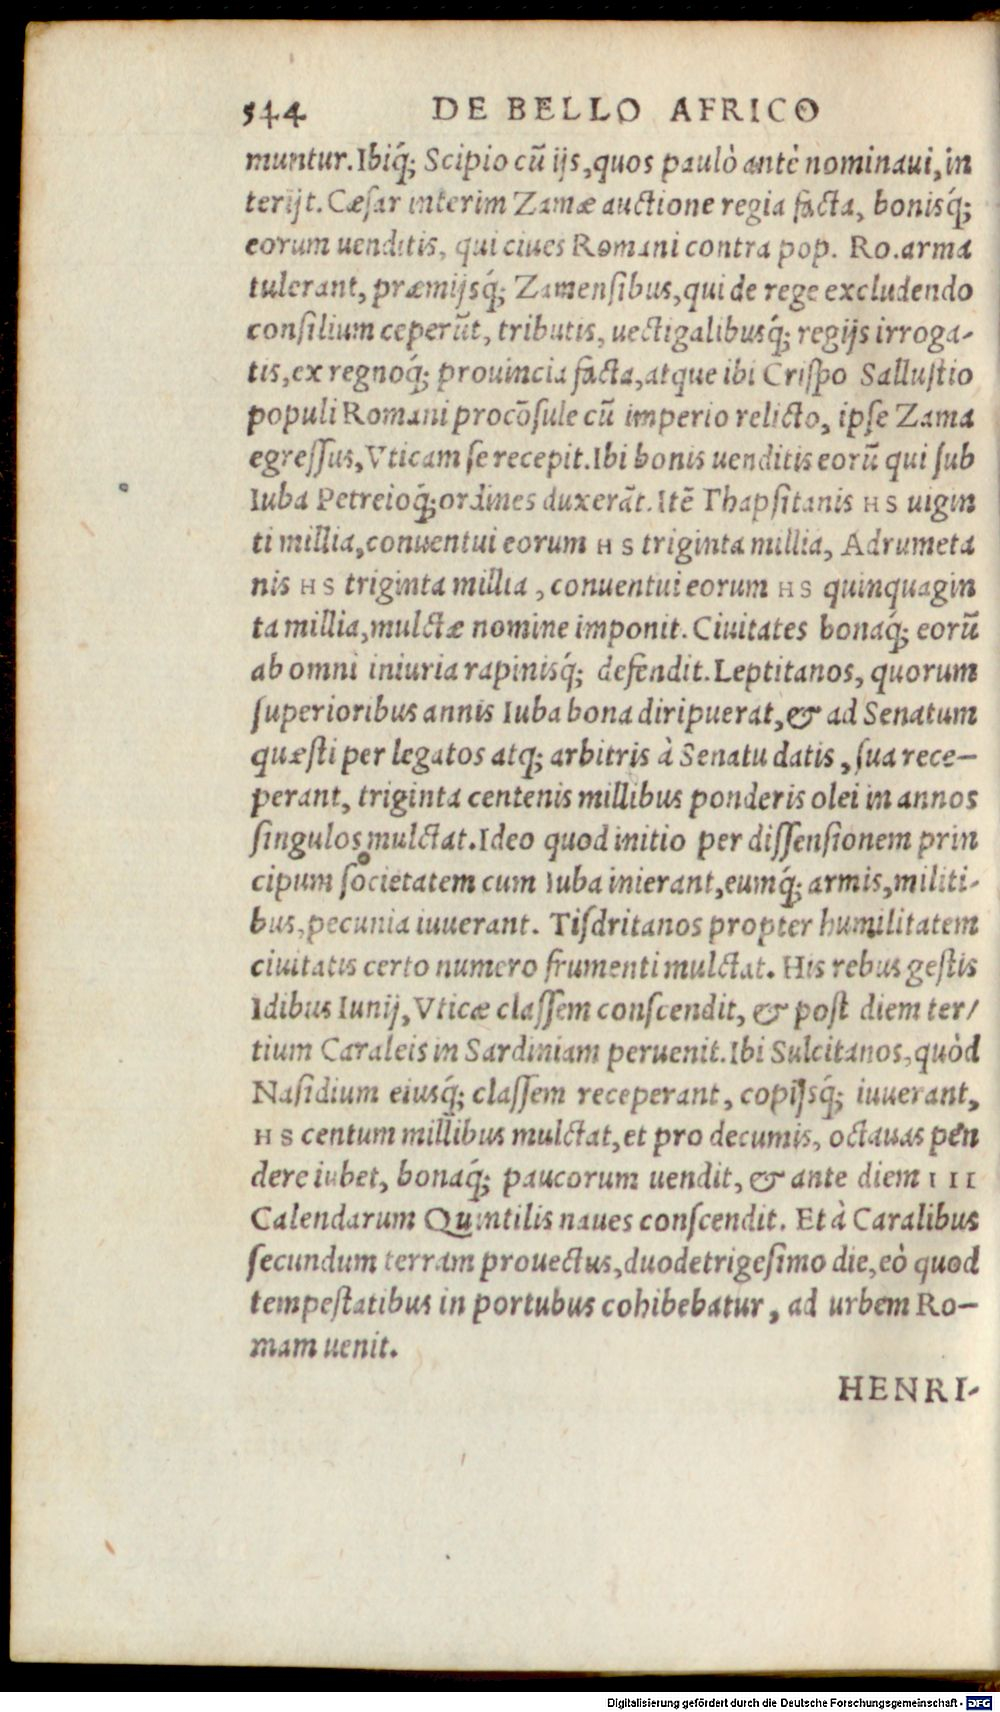 544 DE BELLO AFRICO
muntur. Ibiq́; Scipio cū ijs, quos paulò antè nominaui, in
terijt. Cæſar interim Zamæ auctione regia facta, bonisq́;
eorum uenditis, qui ciues Romani contra pop. Ro. arma
tulerant, præmijsq́; Zamenſibus, qui de rege excludendo
conſilium ceperūt, tributis, uectigalibusq́; regijs irroga-
tis, ex regnoq́; prouincia facta, atque ibi Criſpo Salluſtio
populi Romani procōſule cū imperio relicto, ipſe Zama
egreſſus, Vticam ſe recepit. Ibi bonis uenditis eorū qui ſub
Iuba Petreioq́; ordines duxerāt. Itē Thapſitanis HS uigin
ti millia, conuentui eorum HS triginta millia, Adrumeta
nis HS triginta millia, conuentui eorum HS quinquagin
ta millia, mulctæ nomine imponit. Ciuitates bonaq́; eorū
ab omni iniuria rapinisq́; defendit. Leptitanos, quorum
ſuperioribus annis Iuba bona diripuerat, & ad Senatum
quæſti per legatos atq; arbitris à Senatu datis, ſua rece-
perant, triginta centenis millibus ponderis olei in annos
ſingulos mulctat. Ideo quod initio per diſſenſionem prin
cipum ſocietatem cum Iuba inierant, eumq́; armis, militi-
bus, pecunia iuuerant. Tiſdritanos propter humilitatem
ciuitatis certo numero frumenti mulctat. His rebus geſtis
Idibus Iunij, Vticæ claſſem conſcendit, & poſt diem ter/
tium Caraleis in Sardiniam peruenit. Ibi Sulcitanos, quòd
Naſidium eiusq́; claſſem receperant, copijsq́; iuuerant,
HS centum millibus mulctat, et pro decumis, octauas pen
dere iubet, bonaq́; paucorum uendit, & ante diem III
Calendarum Quintilis naues conſcendit. Et à Caralibus
ſecundum terram prouectus, duodetrigeſimo die, eò quod
tempeſtatibus in portubus cohibebatur, ad urbem Ro-
mam uenit.
HENRI-
Digitalisierung gefördert durch die Deutsche Forschungsgemeinschaft - DFG